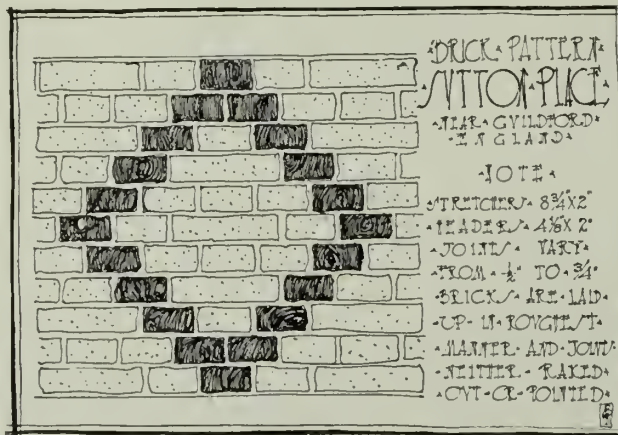 ·BRICK·PATTERN·
SUTTON·PLACE
·NEAR·GVILDFORD·
·ENGLAND·
·NOTE·
·STRETCHERS·8¾"X2"
·HEADERS·4⅛X 2"
·JOINTS·VARY·
·FROM·½"·TO·¾"
·BRICKS·ARE·LAID
·UP·IN·ROUGHEST·
·MANNER·AND·JOINTS
·NEITHER·RAKED·
·CVT·OR·POINTED·